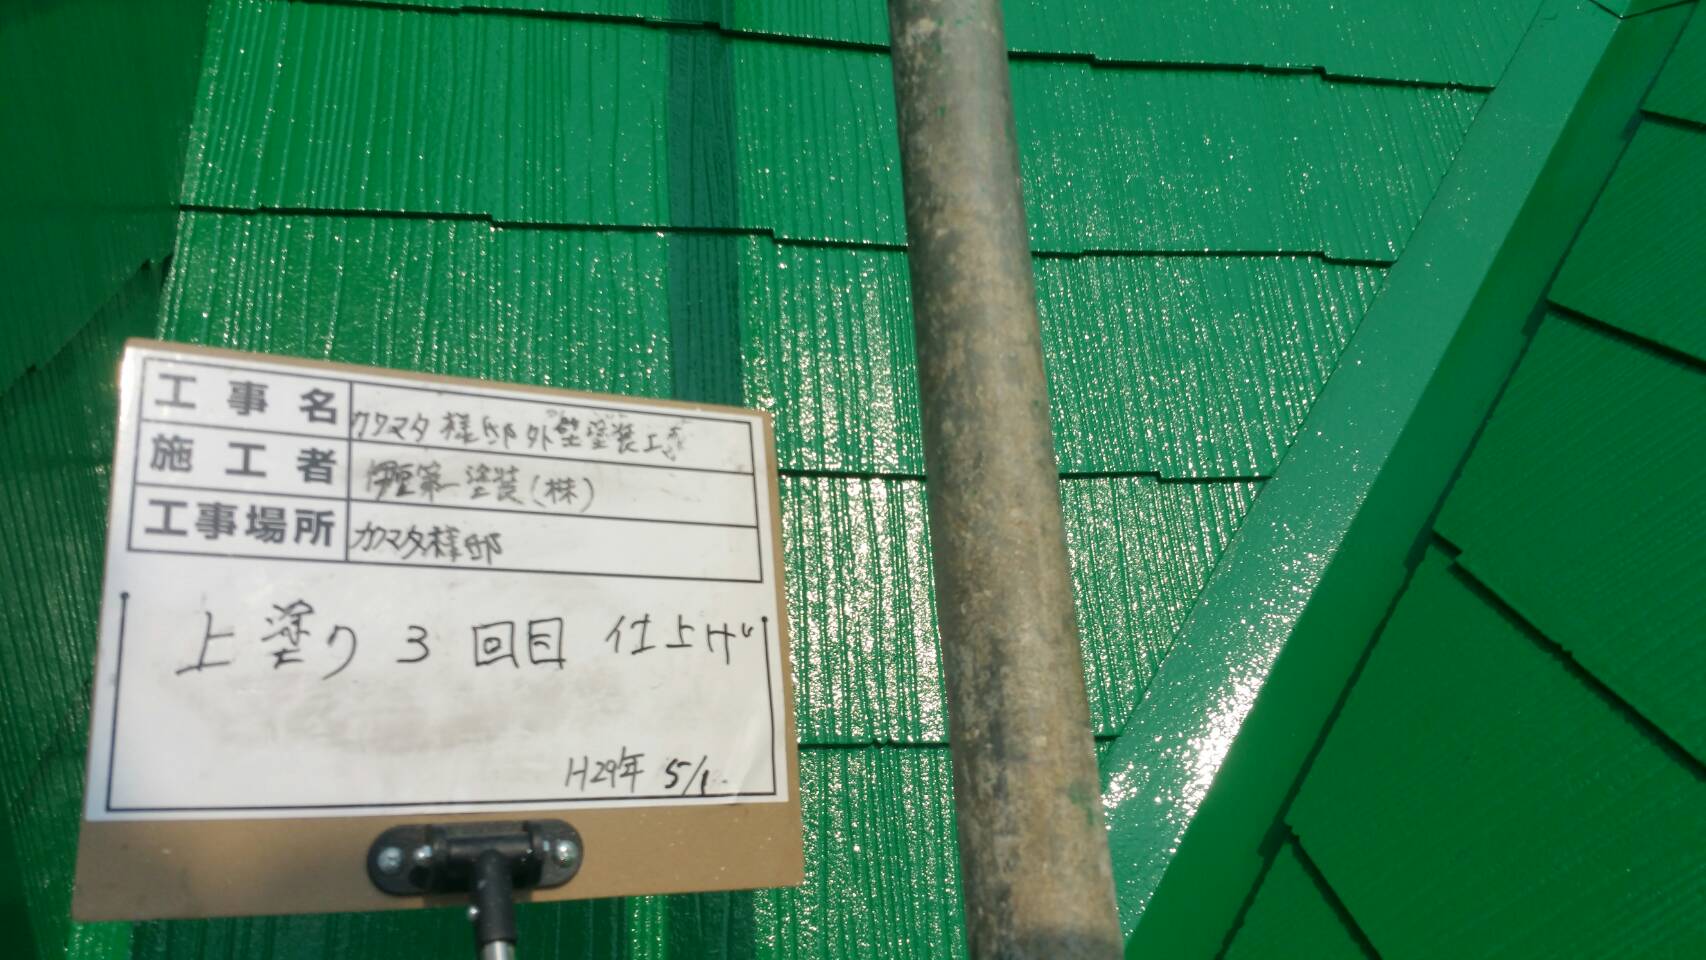 工事名 カクマタ様邸 外壁塗装工事
施工者 伊豆第一塗装(株)
工事場所 カクマタ様邸
上塗り 3 回目 仕上げ
H29年 5/1.